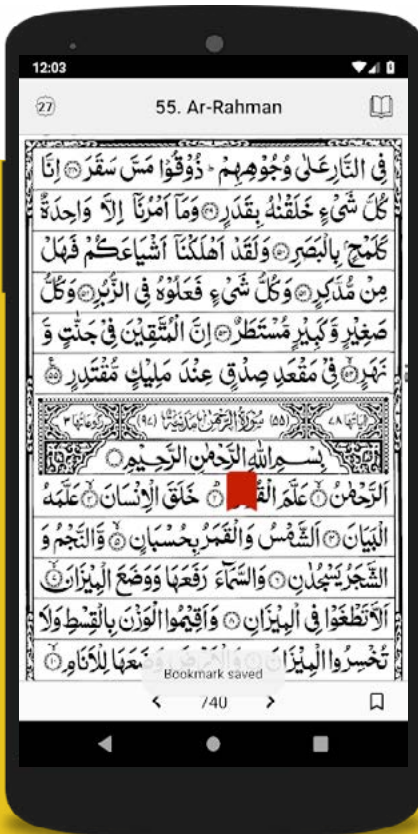 12:03
27
55. Ar-Rahman
فِى النَّارِ عَلٰى وُجُوْهِهِمْ ؕ ذُوْقُوْا مَسَّ سَقَرَ ﴿۴۸﴾ اِنَّا
كُلَّ شَىْءٍ خَلَقْنٰهُ بِقَدَرٍ ﴿۴۹﴾ وَمَاۤ اَمْرُنَاۤ اِلَّا وَاحِدَةٌ
كَلَمْحٍۭ بِالْبَصَرِ ﴿۵۰﴾ وَلَقَدْ اَهْلَكْنَاۤ اَشْيَاعَكُمْ فَهَلْ
مِنْ مُّدَّكِرٍ ﴿۵۱﴾ وَكُلُّ شَىْءٍ فَعَلُوْهُ فِى الزُّبُرِ ﴿۵۲﴾ وَكُلُّ
صَغِيْرٍ وَّكَبِيْرٍ مُّسْتَطَرٌ ﴿۵۳﴾ اِنَّ الْمُتَّقِيْنَ فِىْ جَنّٰتٍ وَّ
نَهَرٍ ﴿۵۴﴾ فِىْ مَقْعَدِ صِدْقٍ عِنْدَ مَلِيْكٍ مُّقْتَدِرٍ ﴿۵۵﴾
اٰيَاتُهَا ٧٨ (٥٥) سُوْرَةُ الرَّحْمٰنِ مَدَنِيَّةٌ (٩٧) رُكُوْعَاتُهَا ٣
بِسْمِ اللهِ الرَّحْمٰنِ الرَّحِيْمِ
اَلرَّحْمٰنُ ﴿۱﴾ عَلَّمَ ﴿۲﴾ خَلَقَ الْاِنْسَانَ ﴿۳﴾ عَلَّمَهُ
الْبَيَانَ ﴿۴﴾ اَلشَّمْسُ وَالْقَمَرُ بِحُسْبَانٍ ﴿۵﴾ وَّالنَّجْمُ وَ
الشَّجَرُ يَسْجُدٰنِ ﴿۶﴾ وَالسَّمَآءَ رَفَعَهَا وَوَضَعَ الْمِيْزَانَ ﴿۷﴾
اَلَّا تَطْغَوْا فِى الْمِيْزَانِ ﴿۸﴾ وَاَقِيْمُوا الْوَزْنَ بِالْقِسْطِ وَلَا
تُخْسِرُوا الْمِيْزَانَ ﴿۹﴾ وَالْاَرْضَ وَضَعَهَا لِلْاَنَامِ ﴿۱۰﴾
Bookmark saved
/40